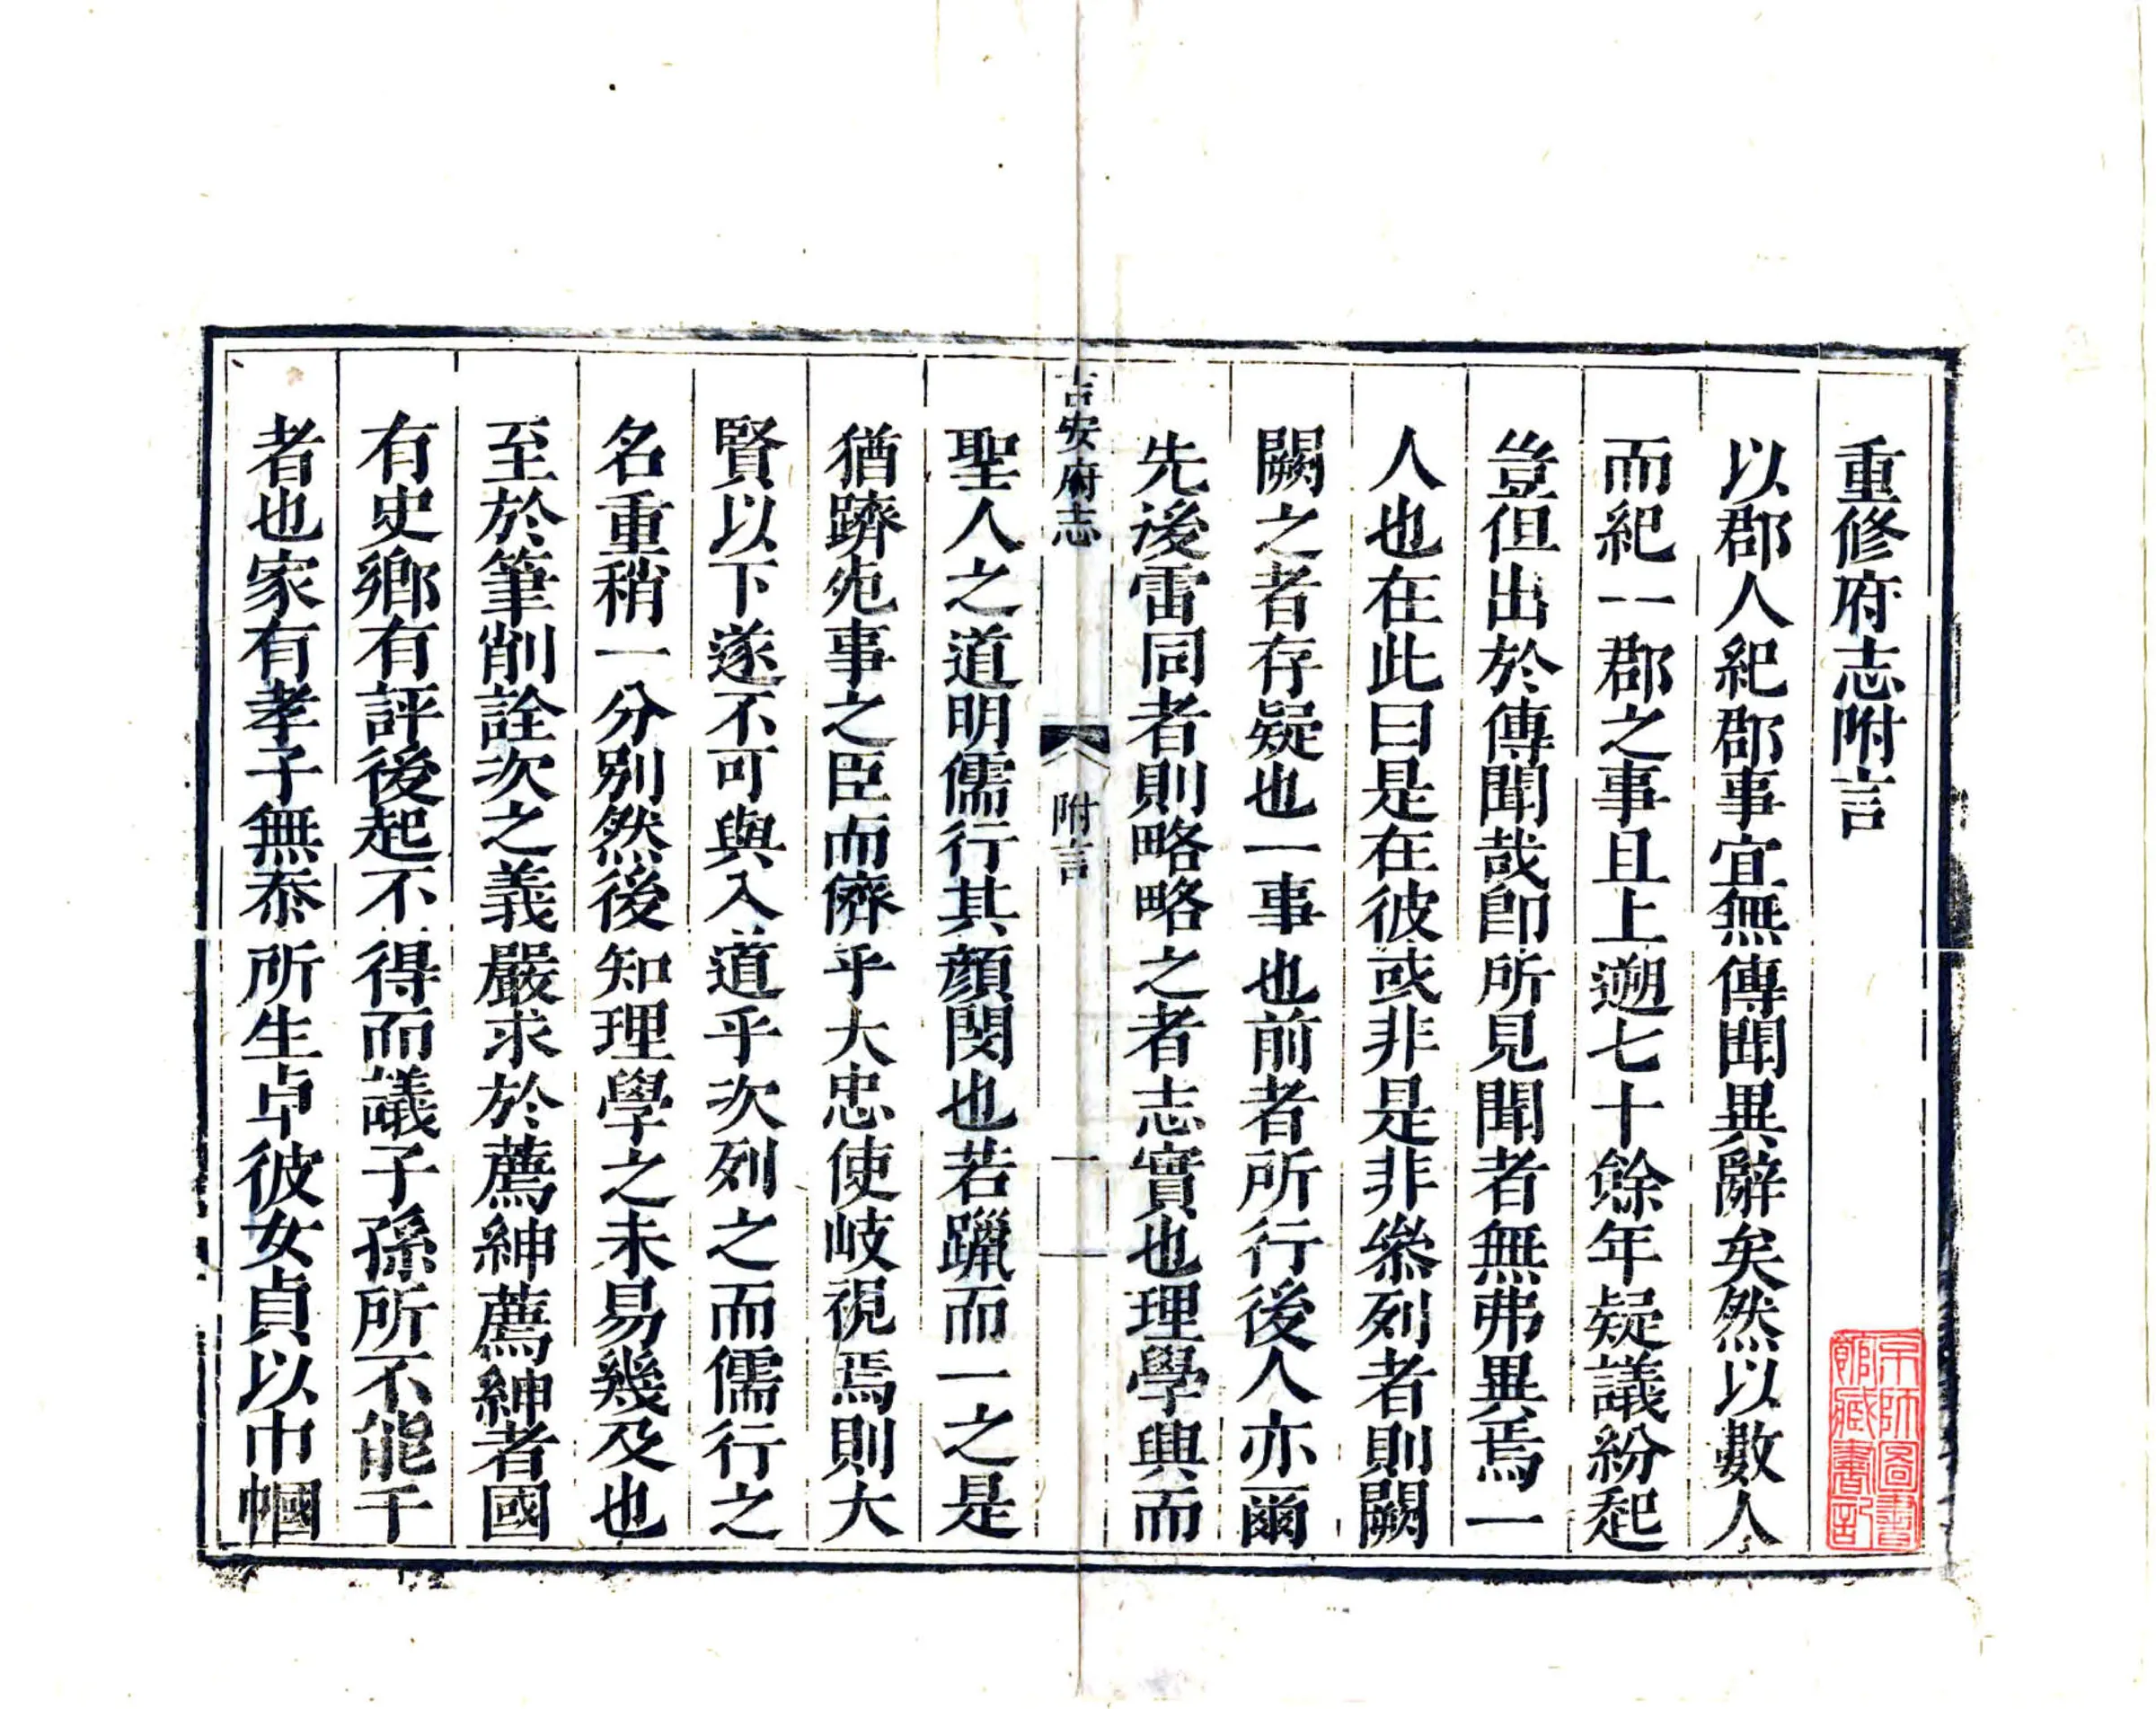 重修府志附言
以郡人紀郡事宜無傳聞異辭矣然以數人
而紀一郡之事且上遡七十餘年疑議紛起
豈但出於傳聞哉卽所見聞者無弗異焉一
人也在此曰是在彼或非是非叅列者則闕
闕之者存疑也一事也前者所行後人亦爾
先後雷同者則略略之者志實也理學與而
吉安府志
附言
一
聖人之道明儒行其顔閔也若躐而一之是
猶躋兇事之臣而儕乎大忠使岐視焉則大
賢以下遂不可與入道乎次列之而儒行之
名重稍一分別然後知理學之未易幾及也
至於筆削詮次之義嚴求於薦紳薦紳者國
有史鄉有評後起不得而議子孫所不能干
者也家有孝子無忝所生卓彼女貞以巾幗
京師圖書
館藏書記